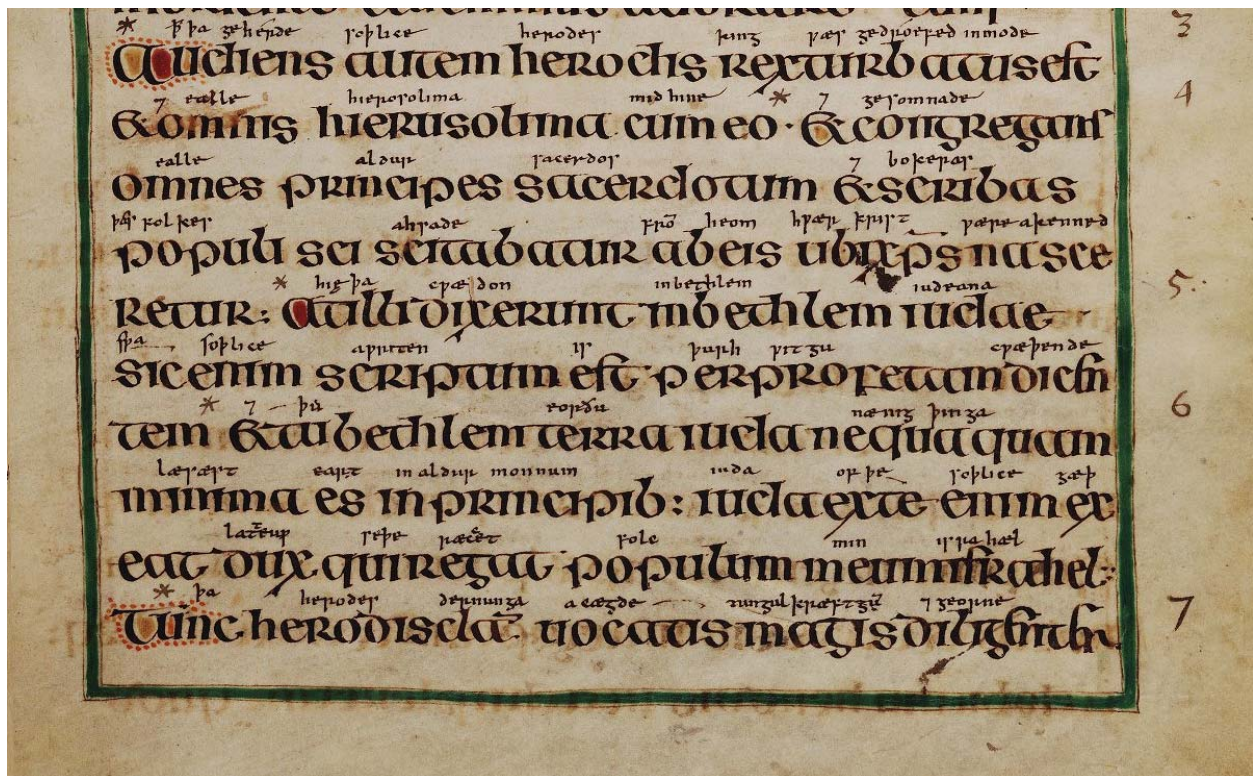 þa geherde soþlice herodes king ƿæs gedroefed in mode
Audiens autem herodis rex turbatus est
3
⁊ ealle hierosolima mid hine ⁊ gesomnade
& omnis hierusolima cum eo · & congregans
4
ealle aldur sacerdos ⁊ bokeras
omnes principes sacerdotum & scribas
þæs folkes ahsade frō heom hƿær krist ƿære akenned
populi sciscitabatur ab eis ubi xp̄s nasce
hię þa cƿædon in bethlem iudeana
retur: At illi dixerunt in bethlem iudae
5
sƿa soþlice aƿriten is þurh ƿitgu cƿæþende
sic enim scriptum est per profetam dicen
⁊ þu eorðu nænig þinga
tem & tu bethlem terra iuda nequaquam
6
læsæst eart in aldur monnum iuda of þe soþlice gæþ
minima es in principib: iuda ex te enim ex
latteuƿ seþe ræcet folc min israhæl
eat dux qui regat populum meum israhel:
þa herodes dernunga acægde tungulkræftgū ⁊ georne
Tunc herodis cla uocatis magis diligenter
7